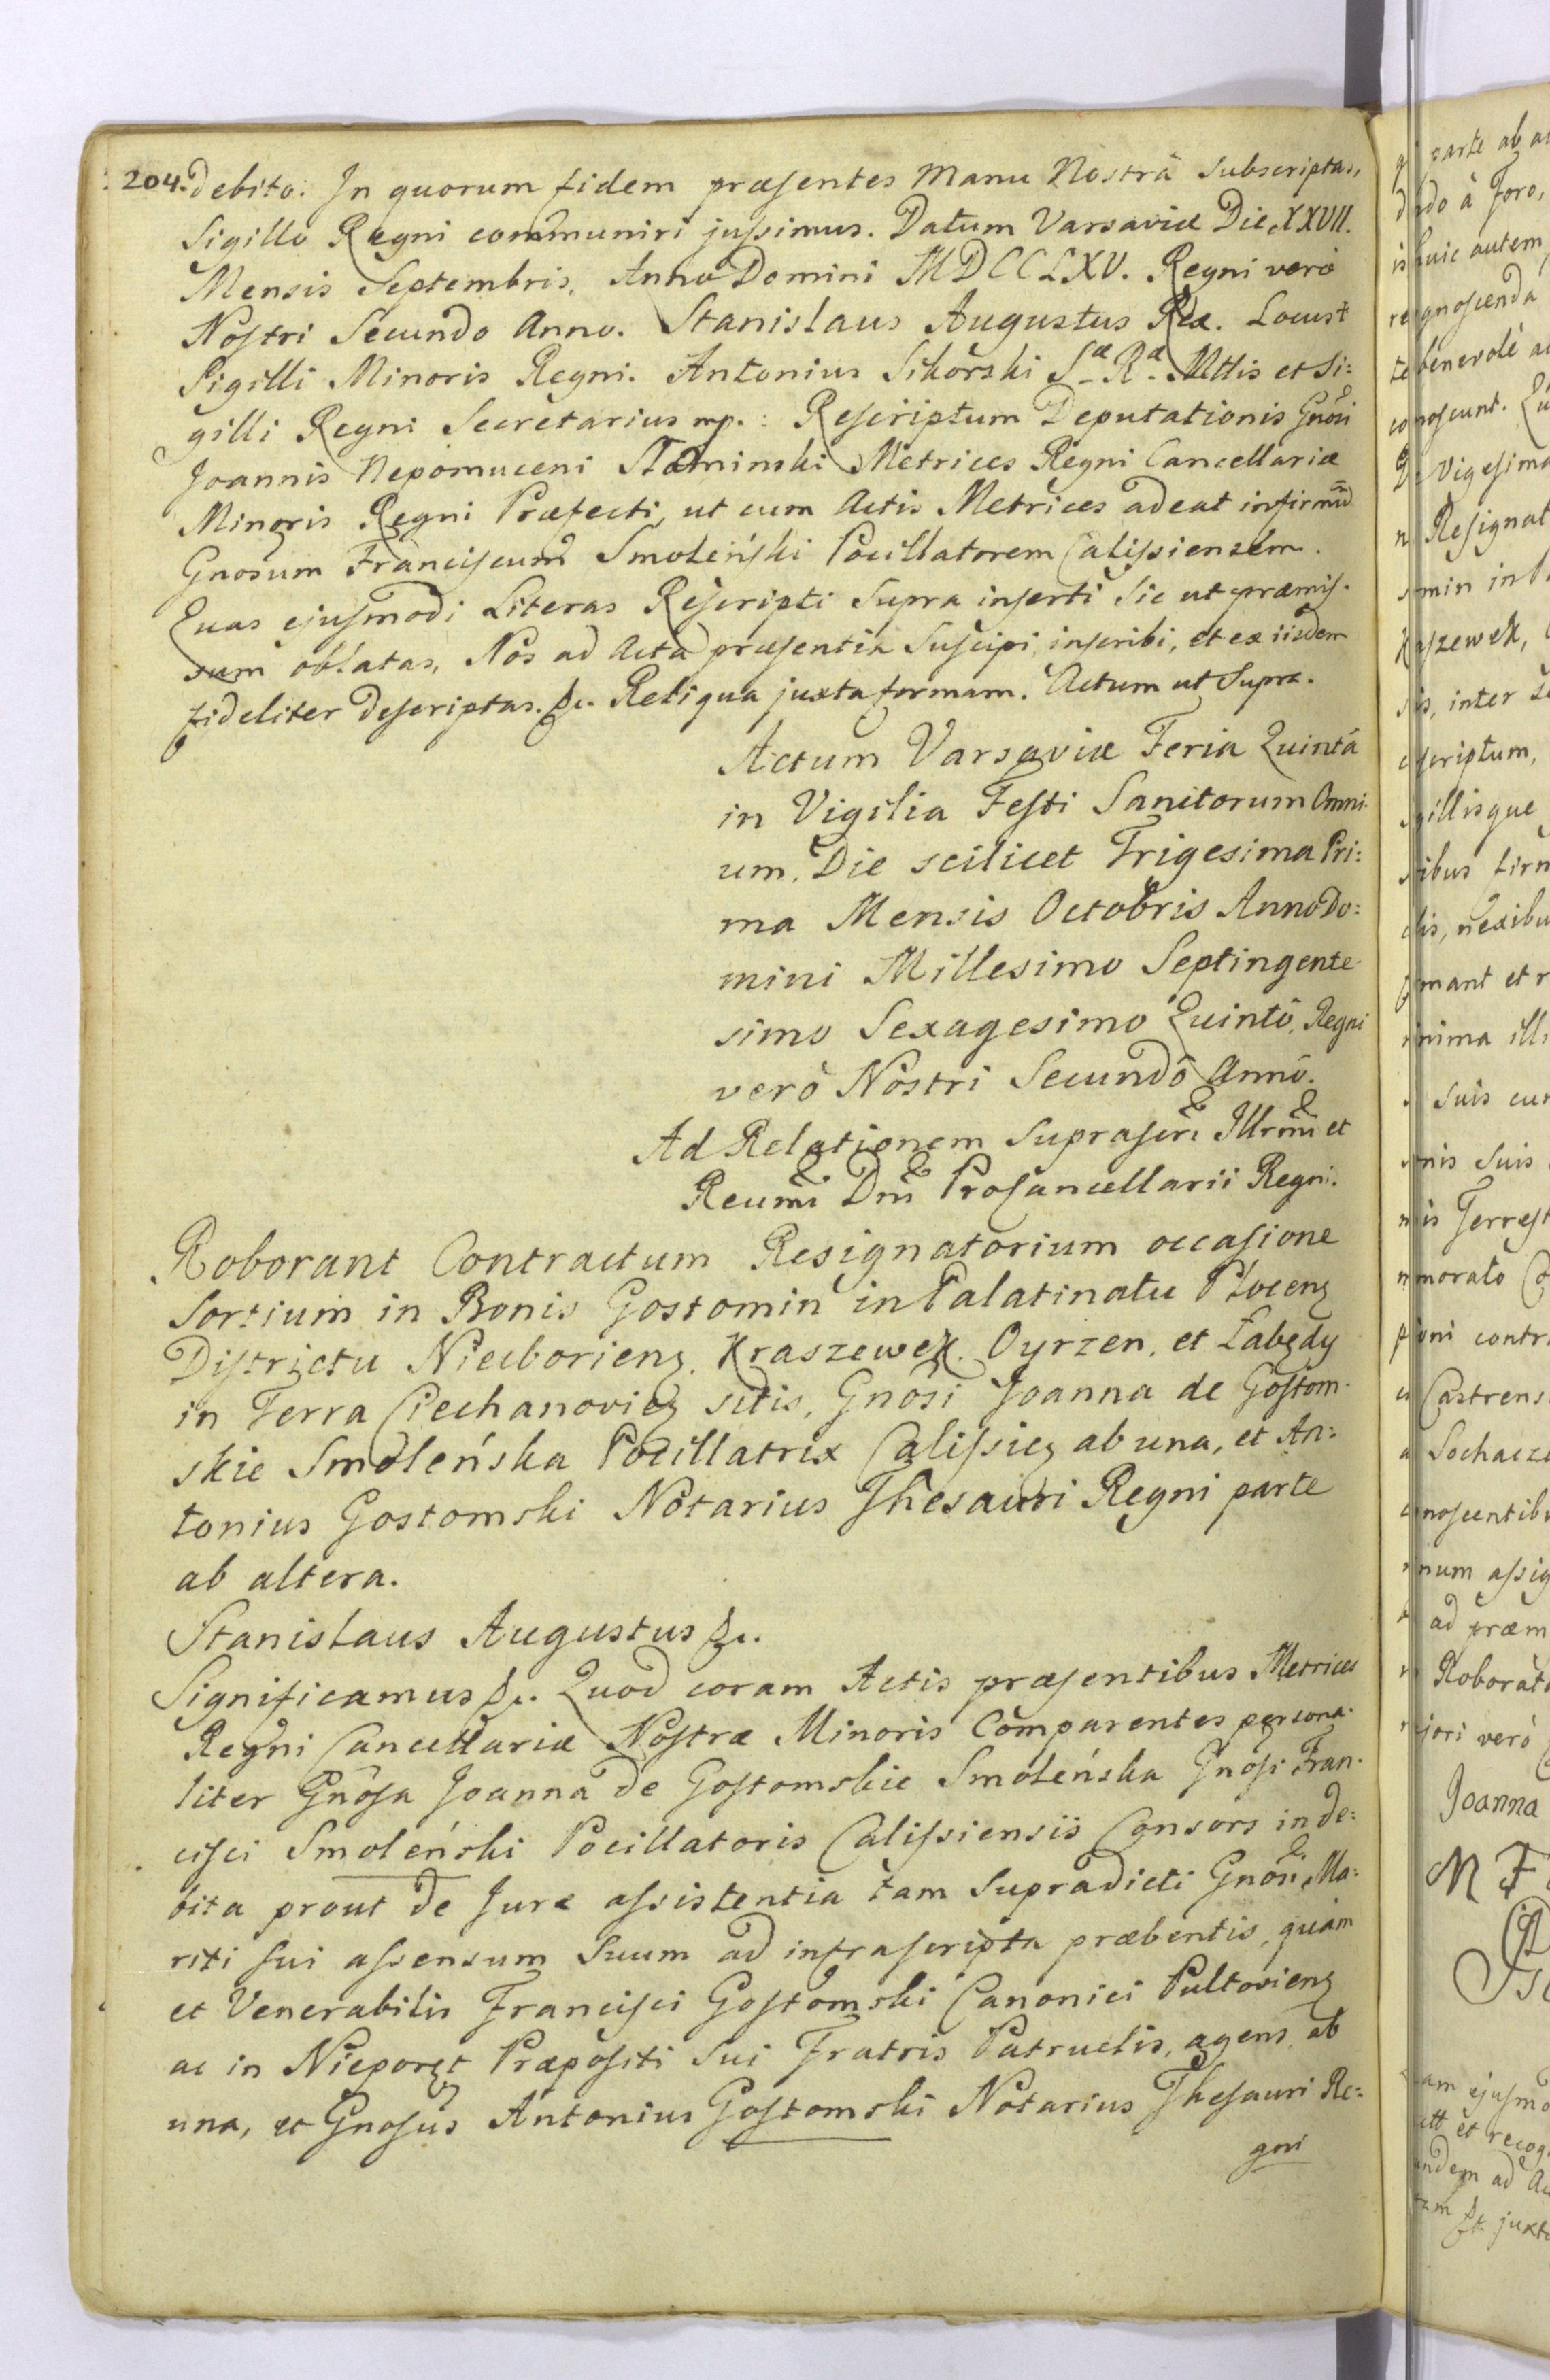 204. debito. In quorum fidem præsentes Manu Nostrâ Subscriptas,
Sigillo Regni communiri jussimus. Datum Varsaviæ Die XXVII.
Mensis Septembris, Anno Domini MDCCLXV. Regni verò
Nostri Secundo Anno. Stanislaus Augustus Rex. Locus
Sigilli Minoris Regni. Antonius Sikorski Sæ Ræ Mttis et Si:
gilli Regni Secretarius mp.: Rescriptum Deputationis Gnõsi
Joannis Nepomuceni Metrices Regni Cancellariæ
Minoris Regni Præfecti, ut cum Actis Metrices adeat infirmũ
Gnosum Franciscum Smoleński Pocillatorem Calissiensem.
Quas ejusmodi Literas Rescripti Supra inserti Sic ut præmis-
sum oblatas, Nos ad Acta præsentia Suscipi, inscribi, et ex iisdem
fideliter descriptas. &c. Reliqua juxta formam. Actum ut Supra.
Actum Varsaviæ Feria Quintâ
in Vigilia Festi Sanctorum Omni-
um, Die scilicet Trigesima Pri:
ma Mensis Octobris Anno Do:
mini Millesimo Septingente-
simo Sexagesimo Quintô, Regni
verò Nostri Secundô Annô.
Ad Relationem Suprascri Illrmi et
Reumi Dni Procancellarii Regni.
Roborant Contractum Resignatorium occasione
Sortium in Bonis Gostomin in Palatinatu Plocenz
Districtu Niedborienz, Kraszewek, Oyrzen, et Łabędy
in Terra Ciechanovien sitis, Gnôsi Joanna de Gostom-
skie Smoleńska Pocillatrix Calissiez ab una, et An:
tonius Gostomski Notarius Thesauri Regni parte
ab altera.
Stanislaus Augustus &c.
Significamus &c. Quod coram Actis præsentibus Metrices
Regni Cancellariæ Nostræ Minoris Comparentes persona-
liter Gnôsa Joanna de Gostomskie Smoleńska Gnosi Fran-
cisci Smoleński Pocillatoris Calissiensis Consors in de:
bita prout de Jure assistentia tam Supradicti Gnôsi Ma:
riti sui assensum Suum ad infrascripta præbentis, quàm
et Venerabilis Francisci Gostomski Canonici Pultovienz
ac in Nieporęt Præpositi Sui Fratris Patruelis, agens ab
una, et Gnosus Antonius Gostomski Notarius Thesauri Re:
gni